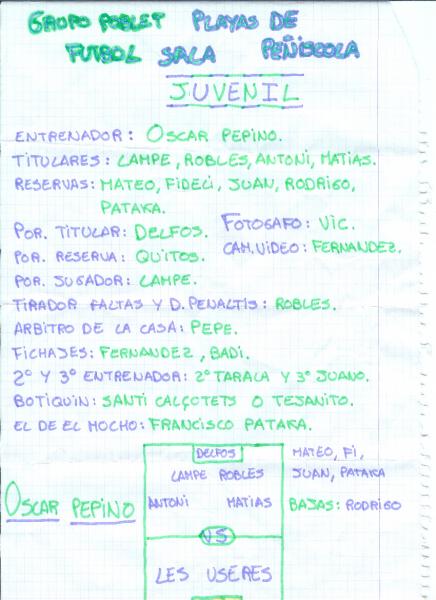 GRUPO POBLET PLAYAS DE
FUTBOL SALA PEÑISCOLA
JUVENIL
ENTRENADOR: OSCAR PEPINO.
TITULARES: LAMPE, ROBLES, ANTONI, MATIAS.
RESERVAS: MATEO, FIDELI, JUAN, RODRIGO,
PATAKA.
POR. TITULAR: DELFOS.
FOTOGAFO: VIC.
POR. RESERVA: QUITOS.
CAM.VIDEO: FERNANDEZ.
POR. JUGADOR: LAMPE.
TIRADOR FALTAS Y D. PENALTIS: ROBLES.
ARBITRO DE LA CASA: PEPE.
FICHAJES: FERNANDEZ, BADI.
2º Y 3º ENTRENADOR: 2º TARALA Y 3º JUANO.
BOTIQUIN: SANTI CALÇOTETS O TEJANITO.
EL DE EL MOCHO: FRANCISCO PATAKA.
DELFOS
LAMPE ROBLES
ANTONI MATIAS
VS
LES USERES
MATEO, FI,
JUAN, PATAKA
BAJAS: RODRIGO
OSCAR PEPINO